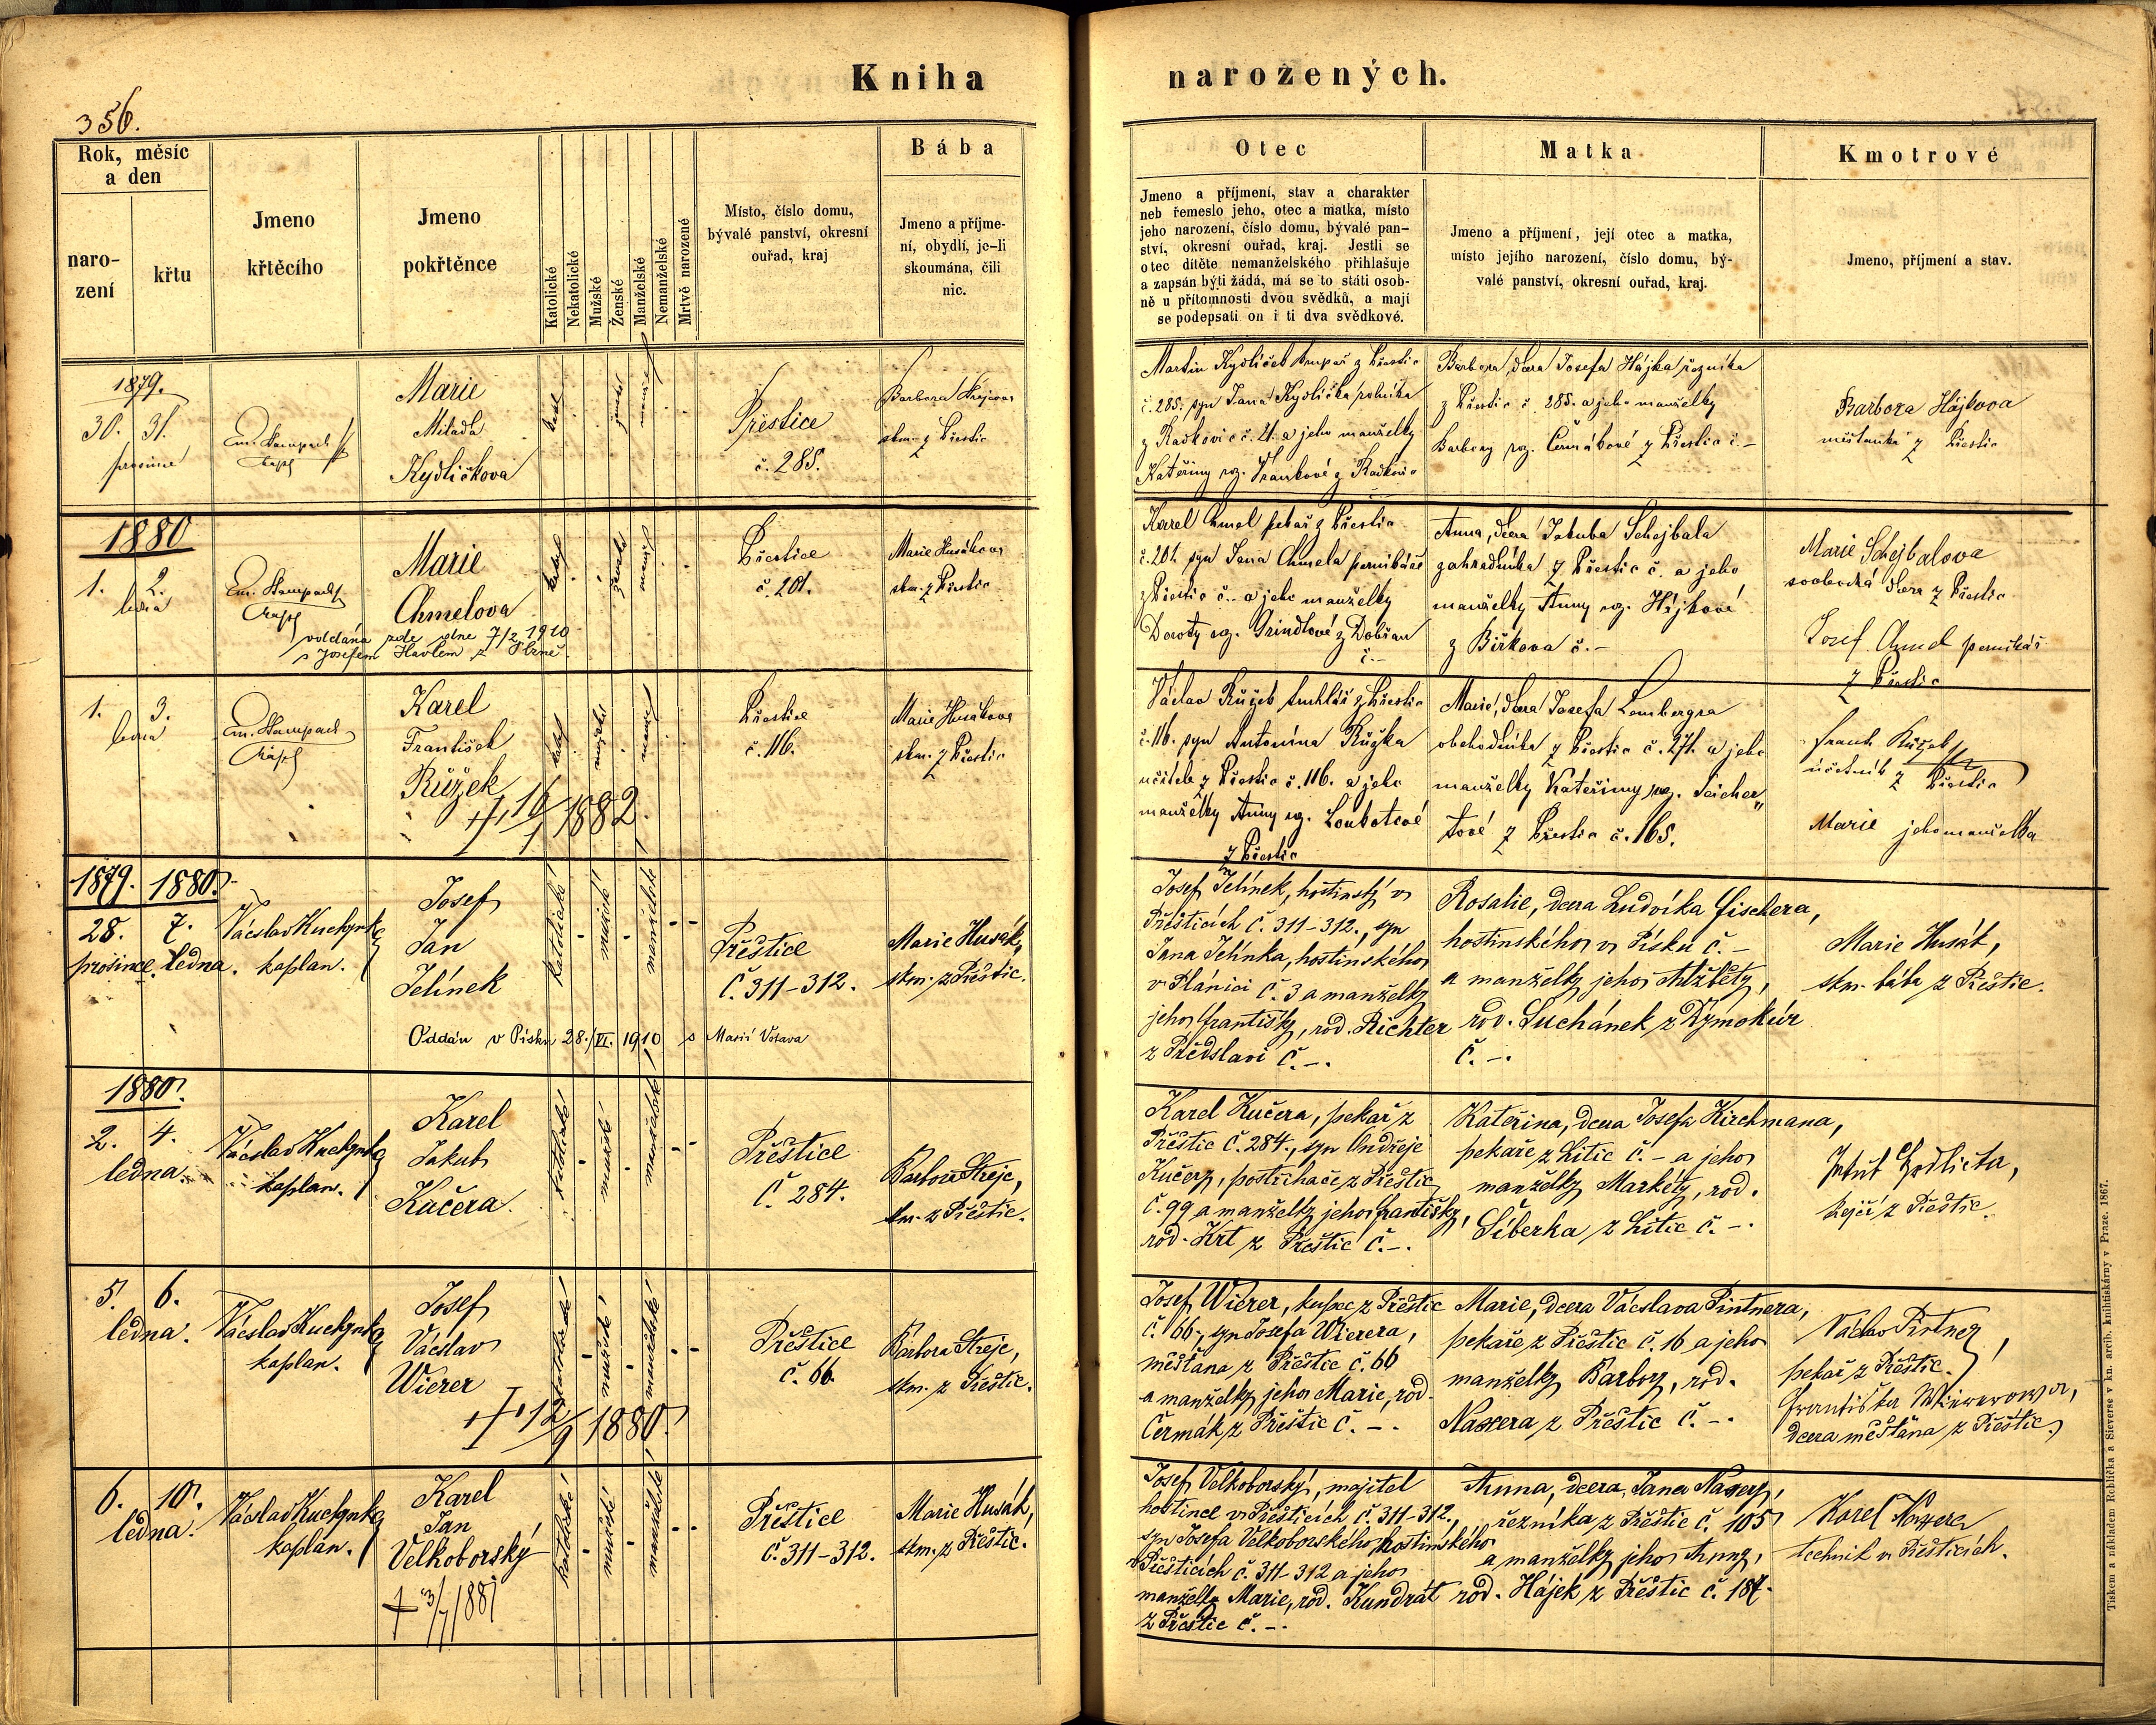 Kniha narozených.
356.
Rok, měsíc
a den
naro-
zení
křtu
Jmeno
křtěcího
Jmeno
pokřtěnce
Katolické
Nekatolické
Mužské
Ženské
Manželské
Nemanželské
Mrtvě narozené
Místo, číslo domu,
bývalé panství, okresní
ouřad, kraj
Bába
Jmeno a příjme-
ní, obydlí, je-li
skoumána, čili
nic.
Otec
Jmeno a příjmení, stav a charakter
neb řemeslo jeho, otec a matka, místo
jeho narození, číslo domu, bývalé pan-
ství, okresní ouřad, kraj. Jestli se
otec dítěte nemanželského přihlašuje
a zapsán býti žádá, má se to státi osob-
ně u přítomnosti dvou svědků, a mají
se podepsati on i ti dva svědkové.
Matka
Jmeno a příjmení, její otec a matka,
místo jejího narození, číslo domu, bý-
valé panství, okresní ouřad, kraj.
Kmotrové
Jmeno, příjmení a stav.
1879.
30. 31.
prosince
Marie
Milada
Kydličkova
Přestice
č. 285.
Barbora
skm. z Přestic
Martin Kydliček krupař z Přestic
č. 285. syn Jana Kydlička rolníka
z Radkovic č. 21. a jeho manželky
Kateřiny roz. Frankové z Radkovic
Barbora, dcera Josefa Hájka řezníka
z Přestic č. 285. a jeho manželky
Barbory roz. Čermákové z Přestic č. –
Barbora Hájkova
měštanka z Přestic
1880
1. 2.
ledna
Em. Stampach
Marie
Chmelova
oddána zde dne 7/2 1910
s Josefem Havlem z Plzně.
Přestice
č. 201.
Marie Husákova
skm. z Přestic
Karel Chmel pekař z Přestic
č. 201. syn Jana Chmela pernikáře
z Přestic č. – a jeho manželky
Doroty roz. Grindlové z Dobřan
č. –
Anna, dcera Jakuba Schejbala
zahradníka z Přestic č. a jeho
manželky Anny roz. Hájkové
z Birkova č. –
Marie Schejbalova
svobodná dcera z Přestic
Josef Chmel pernikář
z Přestic
1. 3.
ledna
Em. Stampach
Karel
František
Růžek
† 16/1 1882.
Přestice
č. 116.
Marie Husákova
skm. z Přestic
Václav Růžek truhlář z Přestic
č. 116. syn Antonína Růžka
učitele z Přestic č. 116. a jeho
manželky Anny roz. Loubotcové
z Přestic
Marie, dcera Josefa Lembergra
obchodníka z Přestic č. 271. a jeho
manželky Kateřiny roz. Seicher„
tové z Přestic č. 165.
Frant. Růžek
účetník z Přestic
Marie jeho manželka
1879. 1880.
28. 7.
prosince. ledna.
Vácslav Kuchynka
kaplan.
Josef
Jan
Jelínek
katolické
mužské
manželské
Přeštice
č. 311–312.
Marie Husák,
skm. z Přeštic.
Oddán v Písku 28./VI. 1910 s Marií Votava
Josef Jelínek, hostinský v
Přešticích č. 311–312., syn
Jana Jelínka, hostinského
v Plánici č. 3 a manželky
jeho Františky, rod. Richter
z Předslavi č. –.
Rosalie, dcera Ludvíka Fischera,
hostinského v Písku č. –
a manželky jeho Alžběty,
rod. Suchánek z Dymokúr
č. –.
Marie Husák,
skm. bába z Přeštic.
1880.
2. 4.
ledna.
Vácslav Kuchynka
kaplan.
Karel
Jakub
Kučera.
katolické
mužské
manželské
Přeštice
č. 284.
Barbora Streje,
skm. z Přeštic.
Karel Kučera, pekař z
Přeštic č. 284., syn Ondřeje
Kučery, postřihače z Přeštic
č. 99 a manželky jeho Františky,
rod. Krt z Přeštic č. –.
Kateřina, dcera Josefa Kirchmana,
pekaře z Litic č. – a jeho
manželky Markéty, rod.
Síberka z Litic č. –.
krejčí z Přeštic.
5. 6.
ledna.
Vácslav Kuchynka
kaplan.
Josef
Vácslav
Wierer
† 12/9 1880.
katolické
mužské
manželské
Přeštice
č. 66.
Barbora Streje,
skm. z Přeštic.
Josef Wierer, kupec z Přeštic
č. 66., syn Josefa Wierera,
měšťana z Přeštic č. 66
a manželky jeho Marie, rod.
Čermák z Přeštic č. –.
Marie, dcera Vácslava Pintnera,
pekaře z Přeštic č. 16 a jeho
manželky Barbory, rod.
Naxera z Přeštic č. –.
Václav Pintner,
pekař z Přeštic.
Františka Wiererowa,
dcera měšťana z Přeštic.
6. 10.
ledna.
Vácslav Kuchynka
kaplan.
Karel
Jan
Velkoborský
† 3/7 1881
katolické
mužské
manželské
Přeštice
č. 311–312.
Marie Husák,
skm. z Přeštic.
Josef Velkoborský, majitel
hostince v Přešticích č. 311–312.,
syn Josefa Velkoborského, hostinského
v Přešticích č. 311–312 a jeho
manželky Marie, rod. Kundrát
z Přeštic č. –.
Anna, dcera Jana Naxery,
řezníka z Přeštic č. 105
a manželky jeho Anny,
rod. Hájek z Přeštic č. 187.
Karel Naxera
technik v Přešticích.
Tiskem a nákladem Rohlíčka a Sieverse v kn. arcib. knihtiskárny v Praze. 1867.